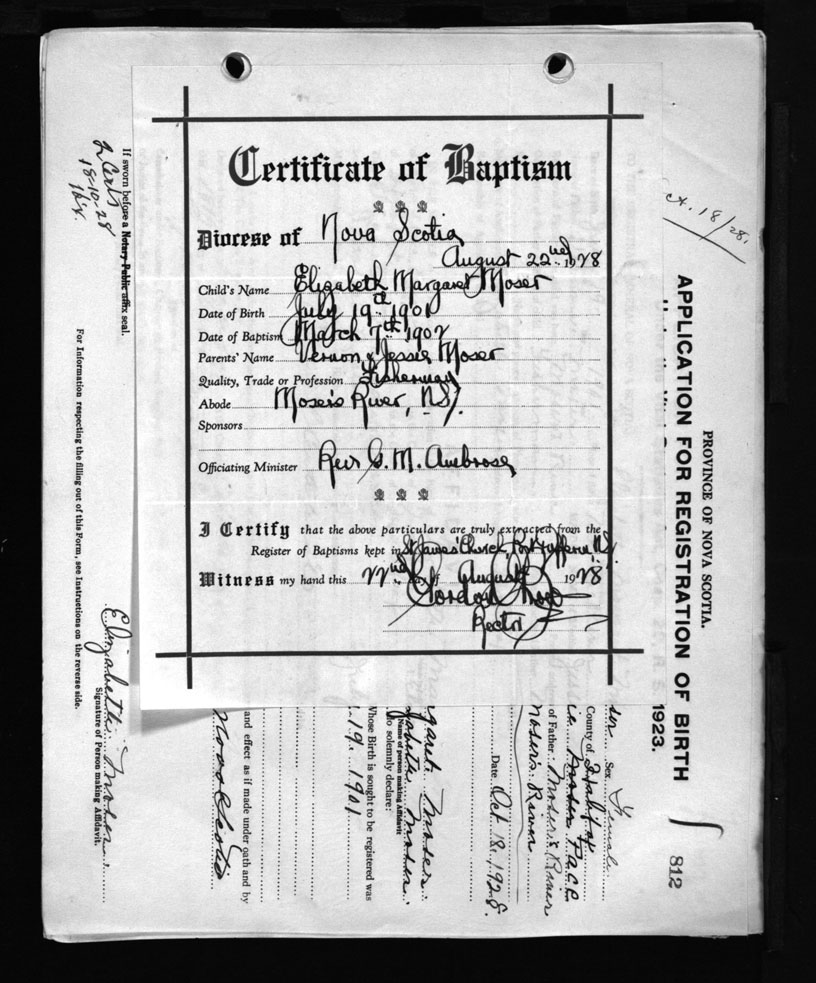 Certificate of Baptism
Diocese of Nova Scotia
August 22nd 1928
Child's Name Elizabeth Margaret Moser
Date of Birth July 19th 1901
Date of Baptism March 7th 1902
Parents' Name Vernon & Jessie Moser
Quality, Trade or Profession Fisherman
Abode Moser's River, N.S.
Sponsors
Officiating Minister Rev G. M. Ambrose
I Certify that the above particulars are truly extracted from the
Register of Baptisms kept in St James' Church, Port Dufferin, N.S.
Witness my hand this 22nd day of August 1928
Gordon
Rector
If sworn before a Notary Public affix seal.
18-10-28
For Information respecting the filling out of this Form, see Instructions on the reverse side.
Elizabeth Moser
Signature of Person making Affidavit.
and effect as if made under oath and by
Nova Scotia
Whose Birth is sought to be registered was
19 1901
garet Moser
Name of person making Affidavit
zabeth Moser
do solemnly declare:
Date Oct 18, 1928.
Moser's River
of Father Moser's River
County of Halifax
ser Sex Female
18/28.
PROVINCE OF NOVA SCOTIA.
APPLICATION FOR REGISTRATION OF BIRTH
1923.
812